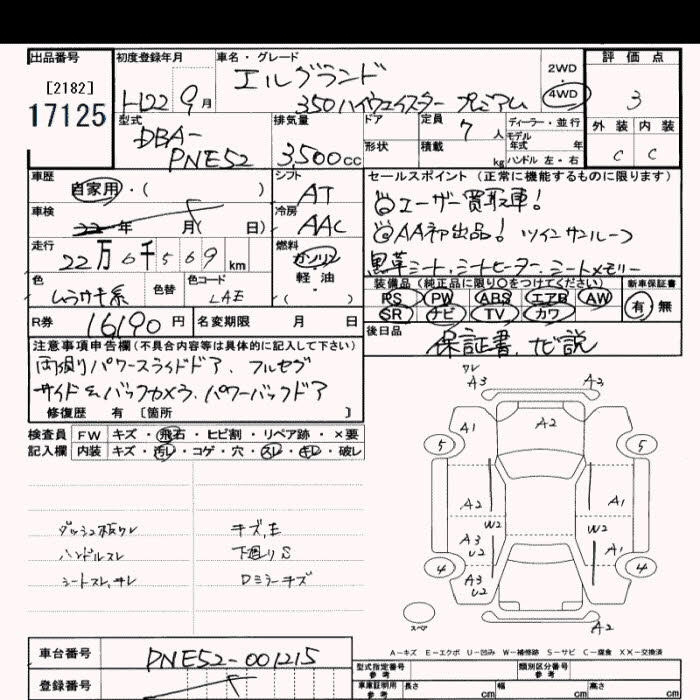 出品番号 初度登録年月 車名・グレード 2WD 評価点
[2182] エルグランド 4WD 3
17125 H22 9月 350ハイウェイスター プレミアム 外装 内装
型式 排気量 ドア 定員 7人 ディーラー・並行 C C
DBA- 形状 積載 kg モデル年式 年
PNE52 3,500cc ハンドル 左・右
車歴 シフト セールスポイント(正常に機能するものに限ります)
自家用・( ) AT ◎ユーザー買取車!
車検 22年 月( 日) 冷房 AAC ◎AA初出品! ツインサンルーフ
走行 22万6千569km 燃料 ガソリン 黒革シート、シートヒーター、シートメモリー
色 色替 色コード 軽油 装備品(純正品に限り○をつけてください) 新車保証書
ムラサキ系 LAE ・( ) PS PW ABS エアB AW 有・無
SR ナビ TV カワ
R券 16190円 名変期限 月 日 後日品
保証書、ナビ説
注意事項申告欄(不具合内容等は具体的に記入して下さい)
両側パワースライドドア、フルセグ
サイド&バックカメラ、パワーバックドア
修復歴 有〔箇所 〕
検査員 FW キズ・飛石・ヒビ割・リペア跡・×要
記入欄 内装 キズ・汚レ・コゲ・穴・スレ・キレ・破レ
ダッシュ板ワレ キズ、E
ハンドルスレ 下廻りS
シートスレ、キレ Dミラーキズ
ワレ
A3 A3
A1 A2
5 5
A2 A1
W2 W2
A3 U2 A1
4 4
A3 U2
スペア A2
A-キズ E-エクボ U-凹み W-補修跡 S-サビ C-腐食 XX-交換済
車台番号 PNE52-001215
登録番号
型式指定番号 参考 類別区分番号 参考
車庫証明用 参考 長さ cm 幅 cm 高さ cm